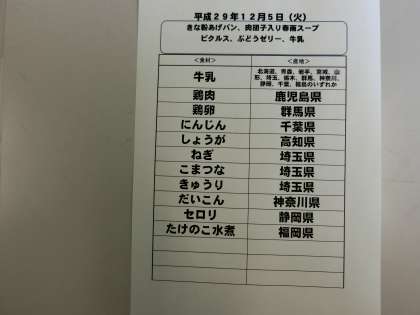 平成29年12月5日（火）
きな粉あげパン、肉団子入り春雨スープ
ピクルス、ぶどうゼリー、牛乳
＜食材＞ ＜産地＞
牛乳 北海道、青森、岩手、宮城、山
形、埼玉、栃木、群馬、神奈川、
静岡、千葉、福島のいずれか
鶏肉 鹿児島県
鶏卵 群馬県
にんじん 千葉県
しょうが 高知県
ねぎ 埼玉県
こまつな 埼玉県
きゅうり 埼玉県
だいこん 神奈川県
セロリ 静岡県
たけのこ水煮 福岡県